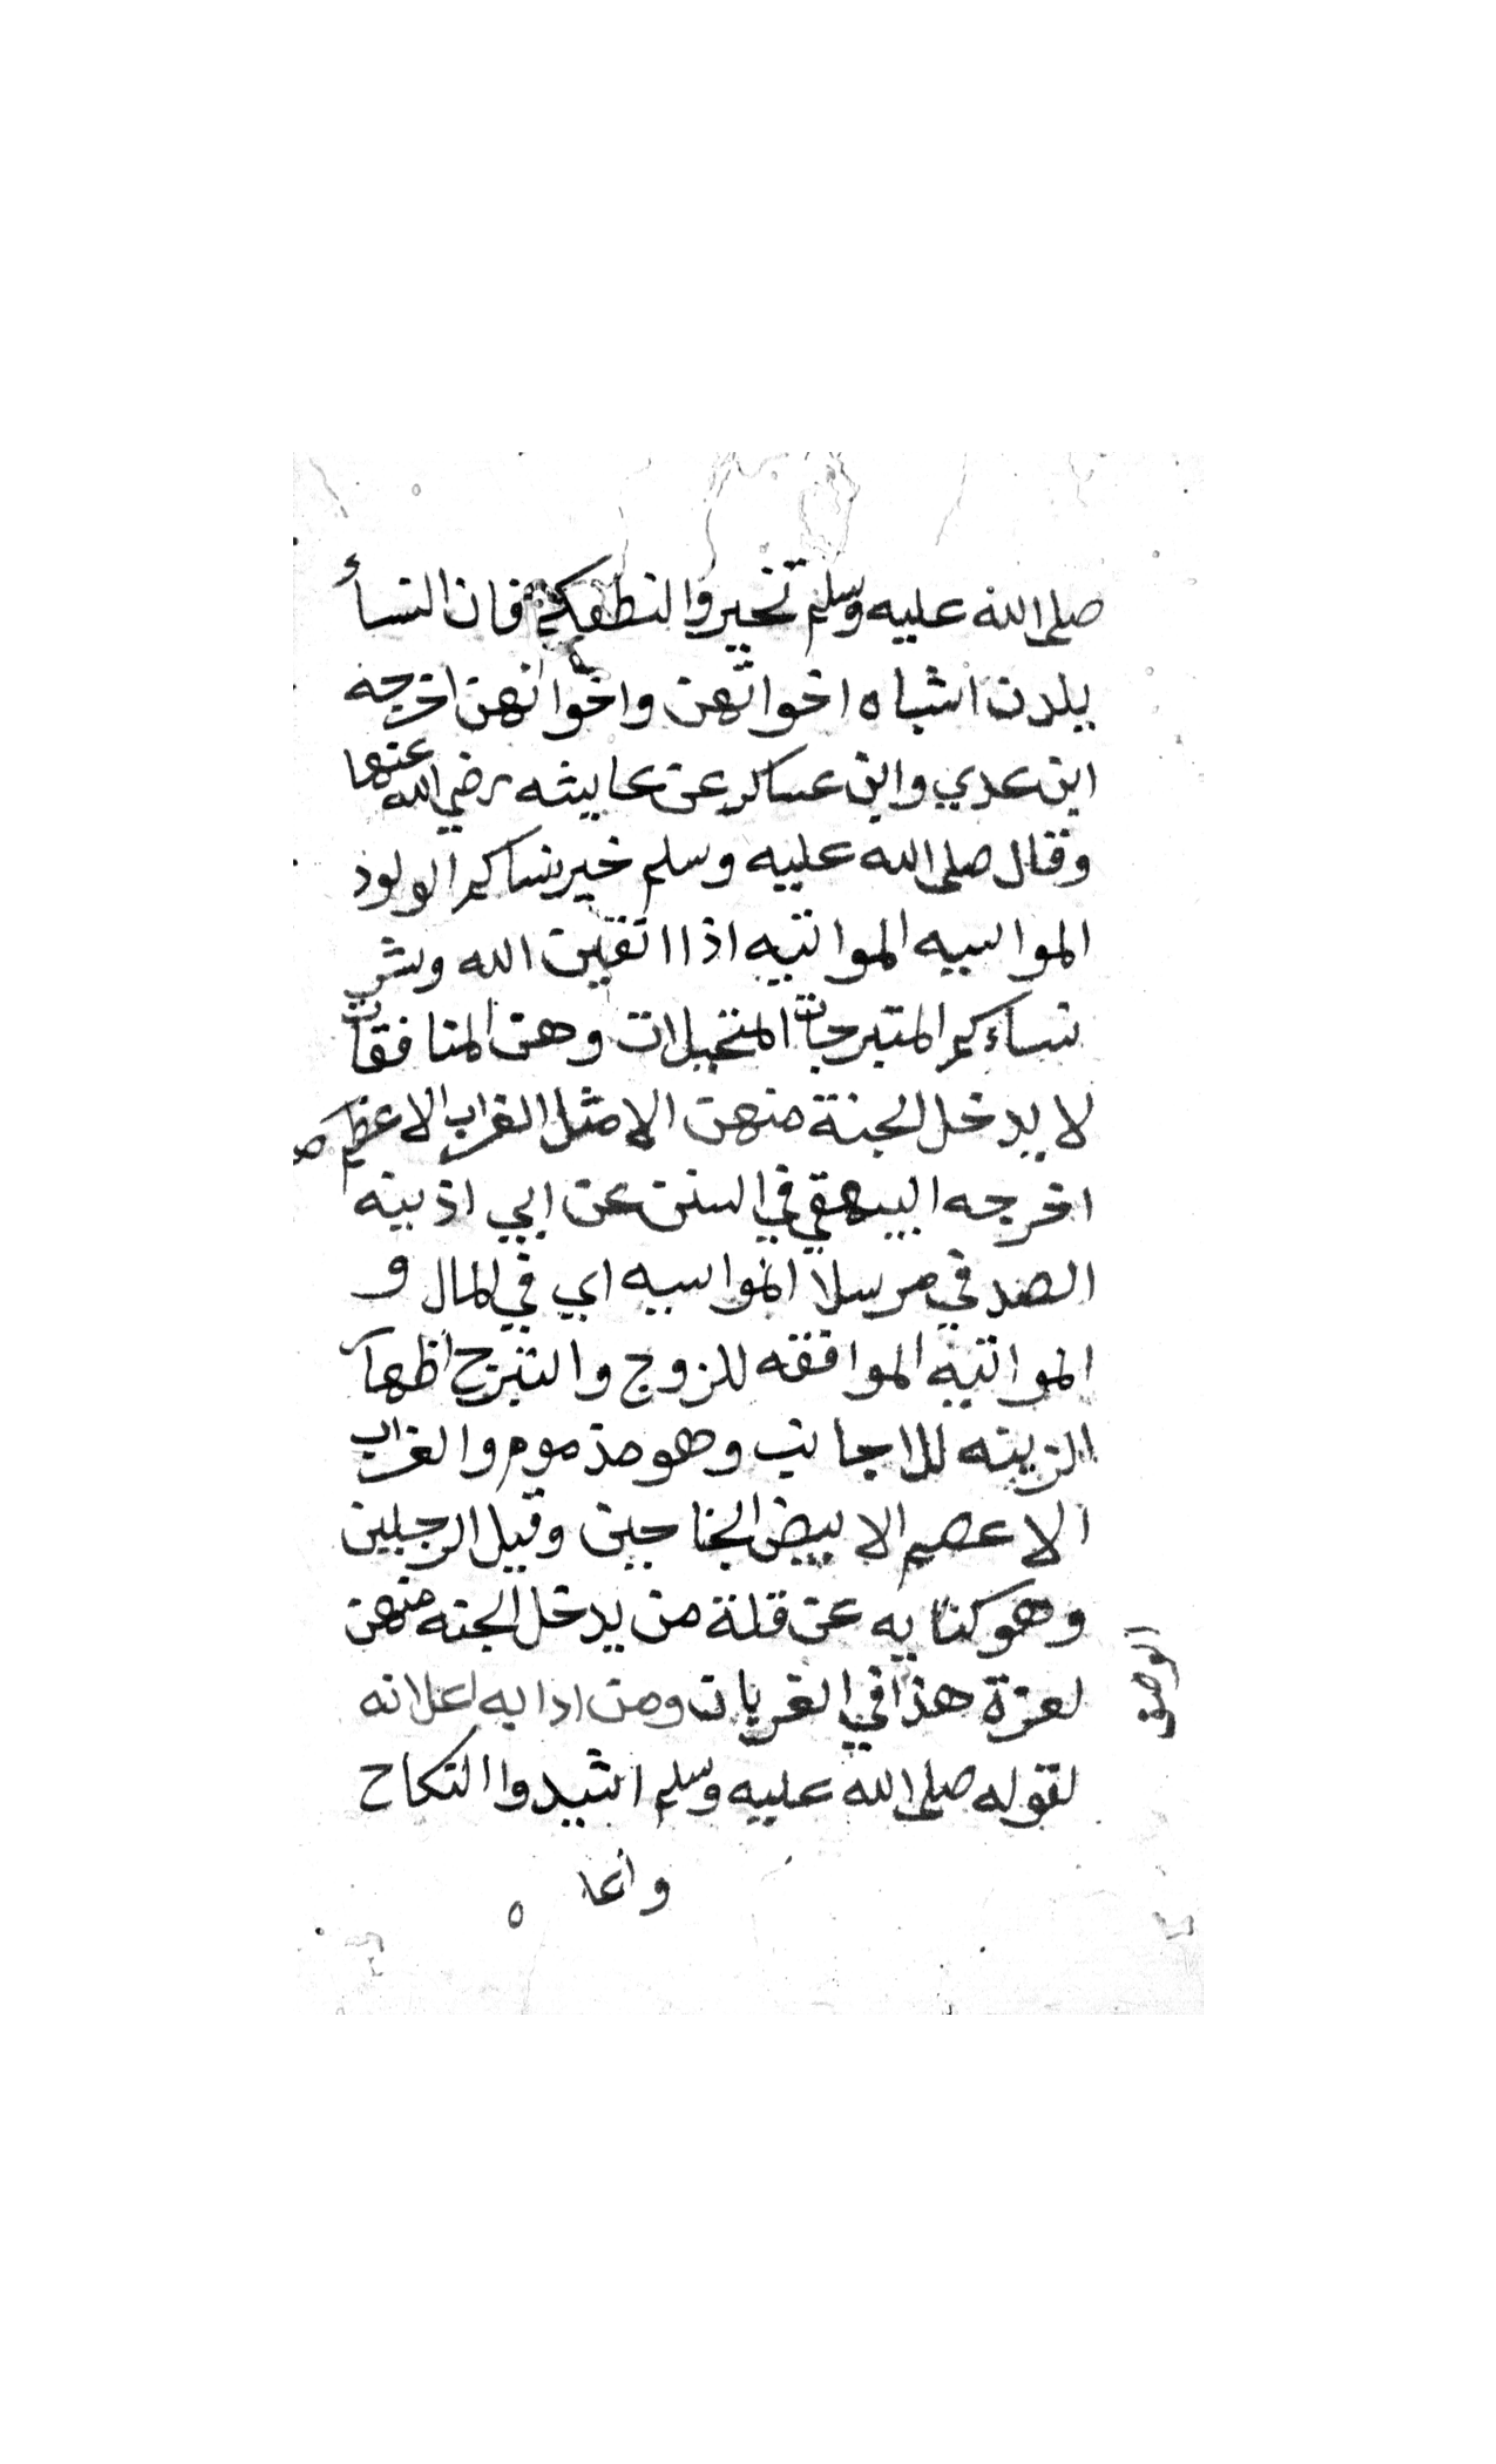 صلى الله عليه وسلم تخيروا لنطفكم فان النسأ
يلدن اشباه اخواتهن واخوانهن اخرجه
ابن عدي وابن عساكر عن عايشه رضي الله عنها
وقال صلى الله عليه وسلم خير نساكم الولود
المواسيه المواتيه اذا اتقين الله وشر
نساءكم المتبرجات المتخيلات وهن المنافقات
لا يدخل الجنة منهن الا مثل الغراب الاعظم
اخرجه البيهقي في السنن عن ابي اذينه
الصدفي مرسلا المواسيه اي في المال و
المواتيه الموافقه للزوج والتبرج اظهار
الزينه للاجانب وهو مذموم والغراب
الاعصم الابيض الجناحين وقيل الرجلين
وهو كنايه عن قلة من يدخل الجنه منهن
لعزة هذا في الغربان ومن ادابه اعلانه
لقوله صلى الله عليه وسلم اشيدوا النكاح